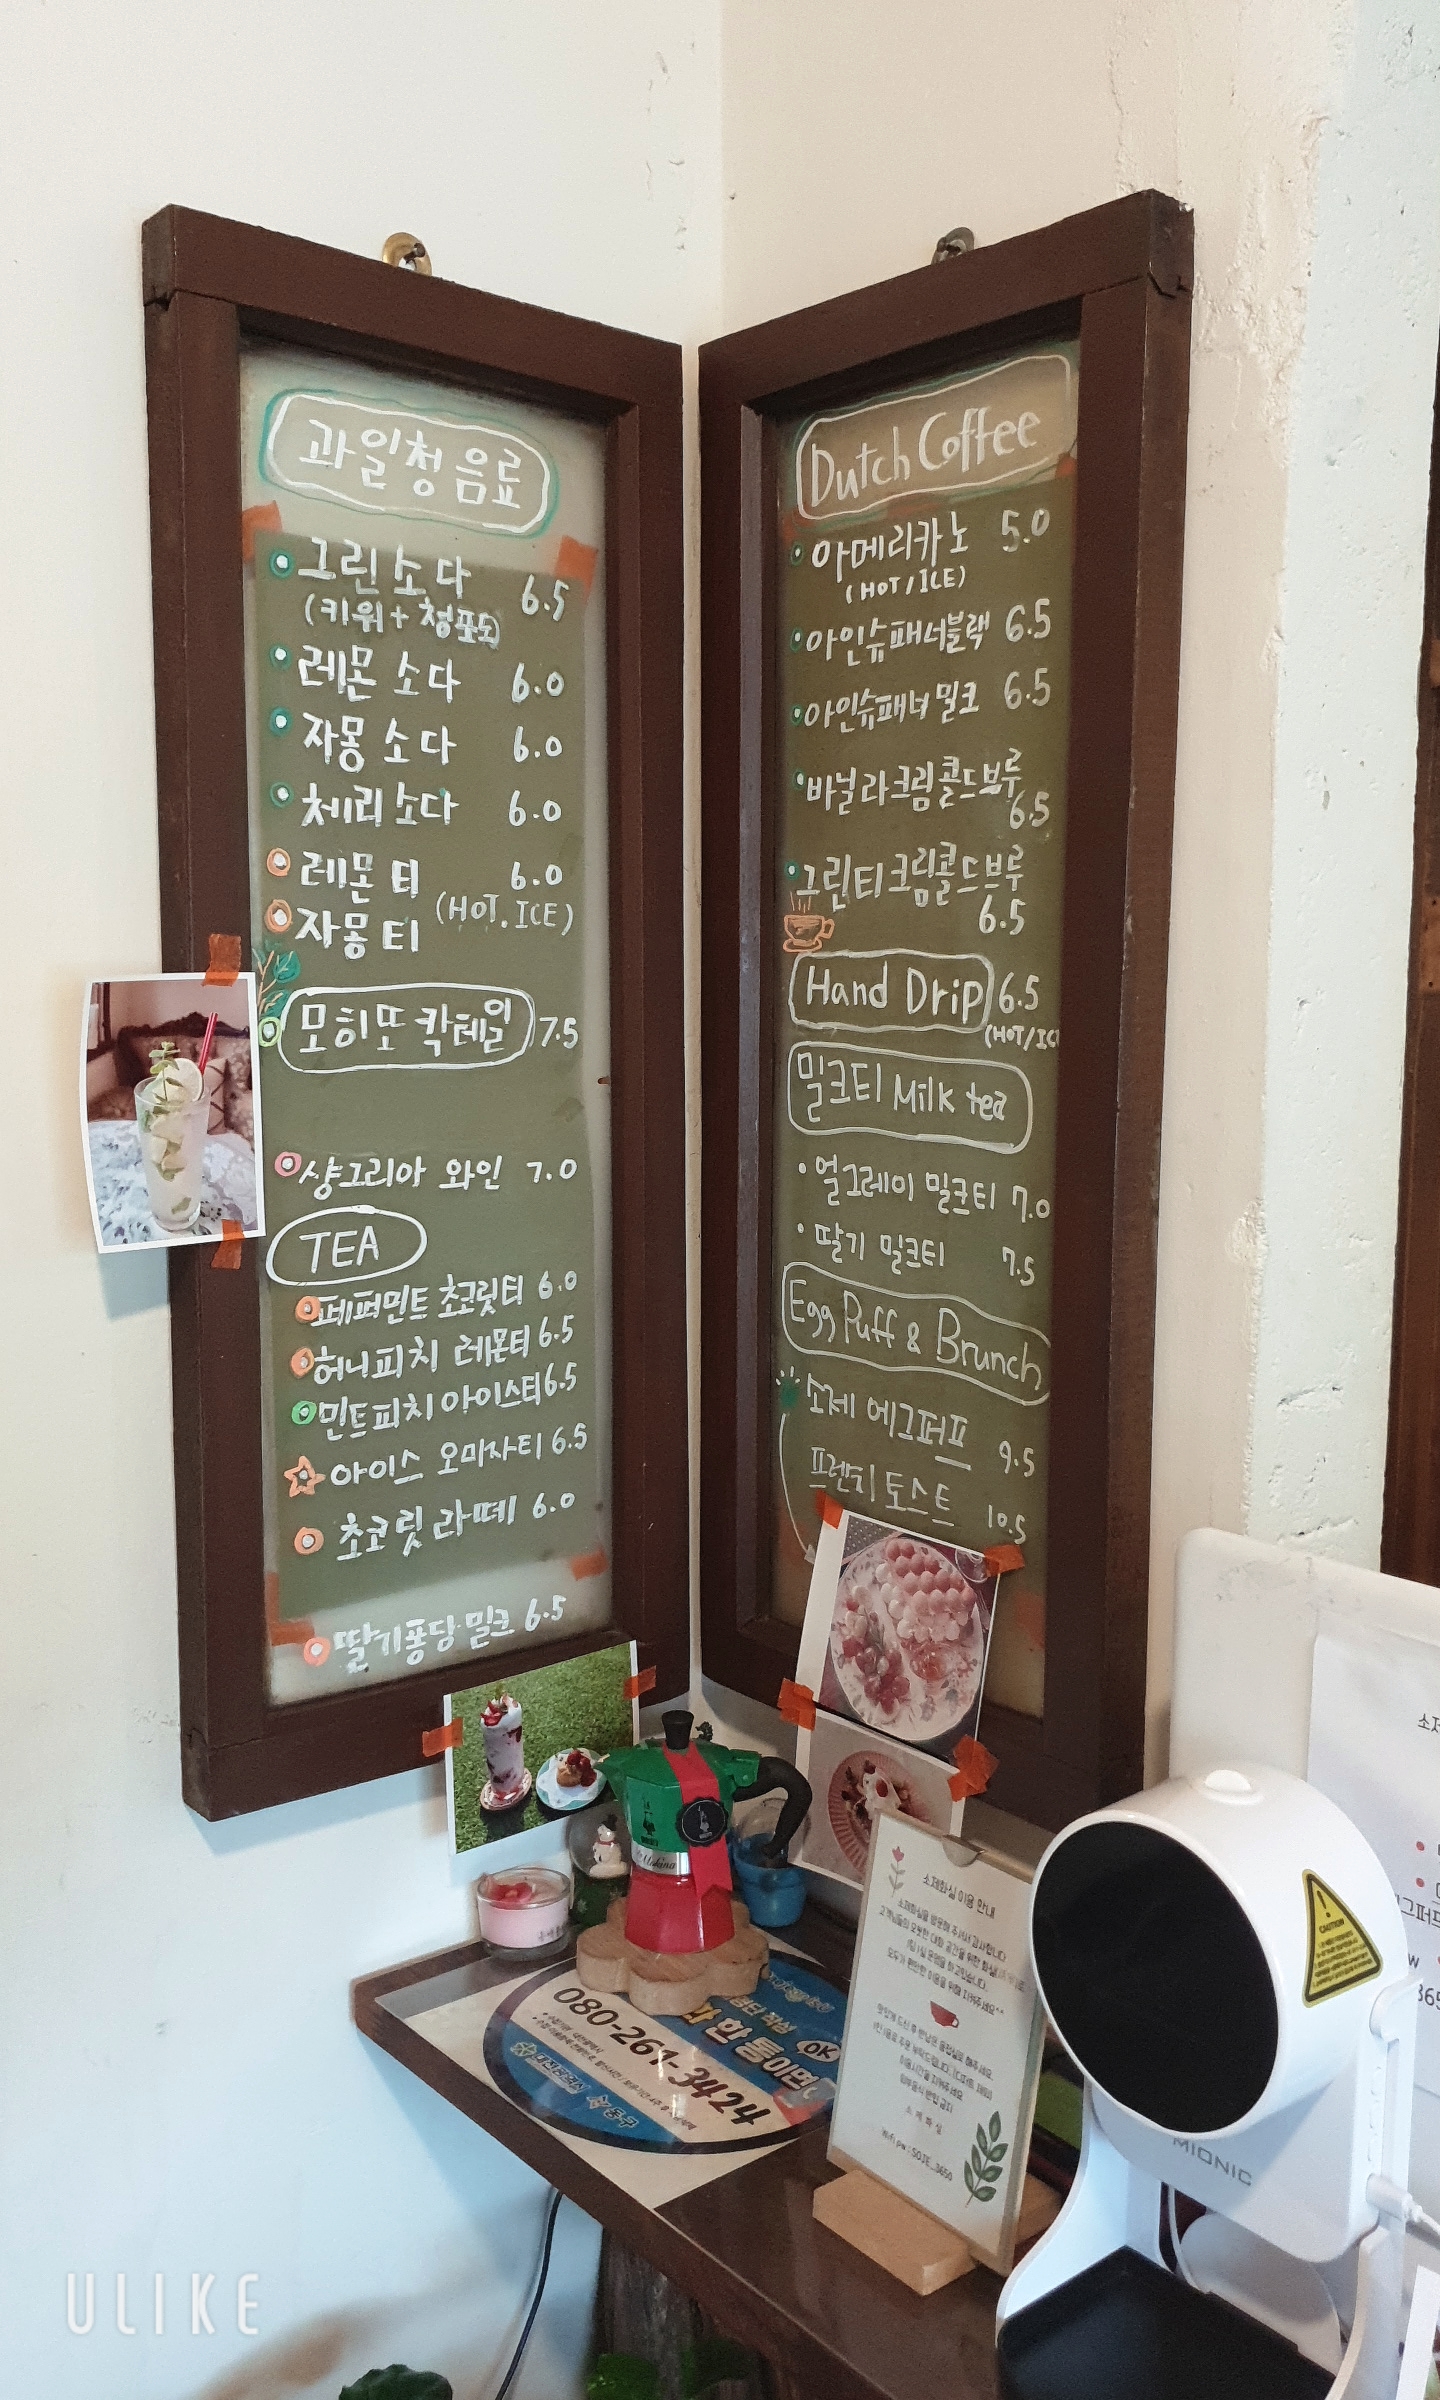 과일청 음료
그린 소다 6.5
(키위 + 청포도)
레몬 소다 6.0
자몽 소다 6.0
체리 소다 6.0
레몬 티 6.0
(HOT. ICE)
자몽 티
모히또 칵테일 7.5
샹그리아 와인 7.0
TEA
페퍼민트 초코릿티 6.0
허니피치 레몬티 6.5
민트피치 아이스티 6.5
아이스 오미자티 6.5
초코릿 라떼 6.0
딸기퐁당밀크 6.5
Dutch Coffee
아메리카노 5.0
(HOT/ICE)
아인슈패너블랙 6.5
아인슈패너 밀크 6.5
바닐라크림콜드브루
6.5
그린티크림콜드브루
6.5
Hand Drip 6.5
(HOT/IC
밀크티 Milk tea
얼그레이 밀크티 7.0
딸기 밀크티 7.5
Egg Puff & Brunch
소제 에그퍼프 9.5
프렌치 토스트 10.5
080-261-3424
OK
대전광역시 동구
소제화실 이용 안내
소제화실을 방문해 주셔서 감사합니다
외부음식 반입 금지
소 제 화 실
Wifi pw : SOJE_3650
CAUTION
MIONIC
ULIKE